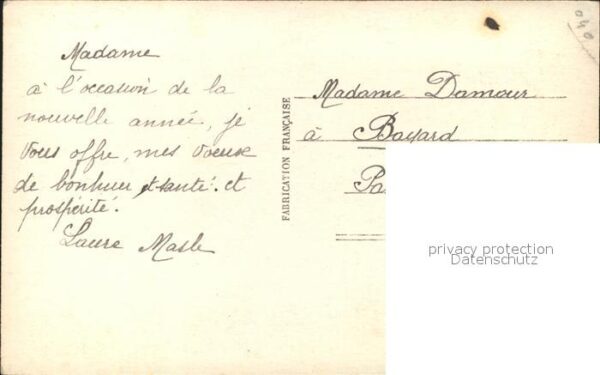 Madame
à l'occasion de la
nouvelle année, je
vous offre, mes voeux
de bonheur, et santé. et
prospérité.
Laure
FABRICATION FRANÇAISE
040
Madame Damour
à Bayard
privacy protection
Datenschutz